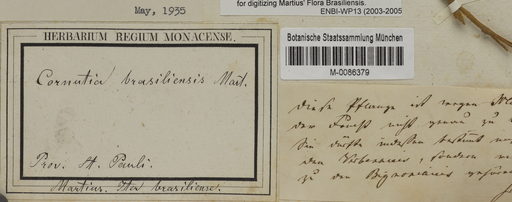 for digitizing Martius' Flora Brasiliensis.
ENBI-WP13 (2003-2005
May, 1935
HERBARIUM REGIUM MONACENSE.
Cornutia brasiliensis Mart.
Prov. St. Pauli.
Martius. Iter brasiliense.
Botanische Staatssammlung München
M-0086379
Diese Pflanze ist wegen
der Frucht nicht genau zu
Sie dürfte indessen bestimmt
den Verbenaceis, sondern
zu den Bignoniaceis gehören